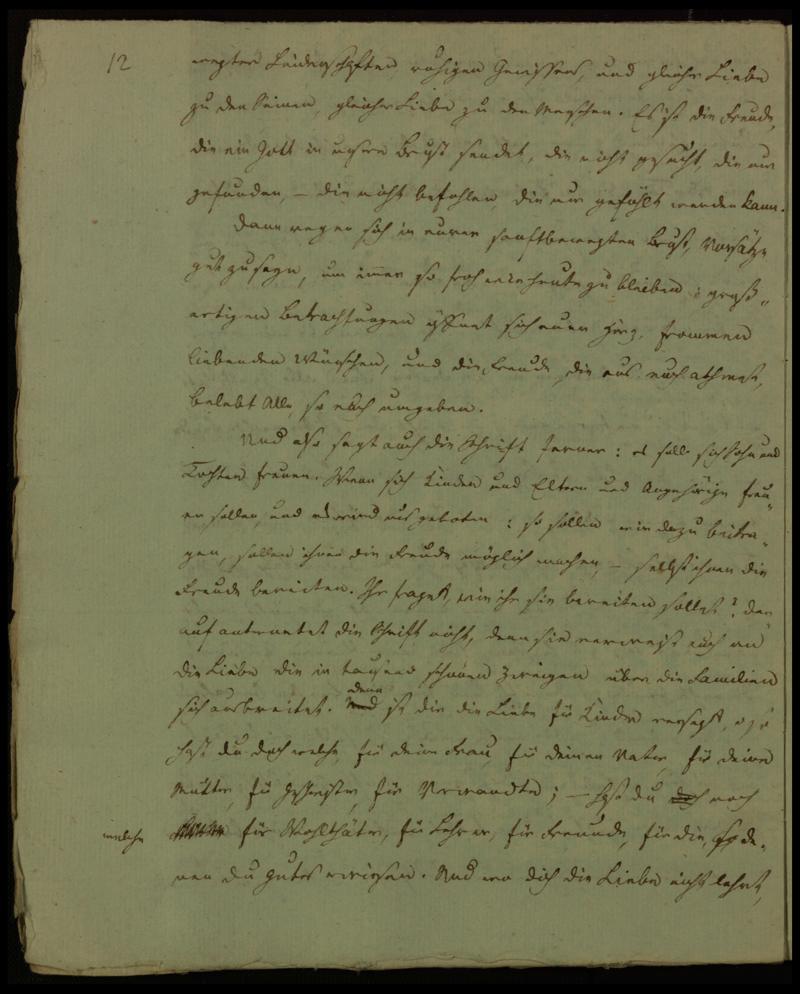 12
regter Leidenschaften, ruhigen Gewissens, und gleicher Liebe
zu den Seinen, gleicher Liebe zu den Menschen. Es ist die Freude,
die ein Gott in unsere Brust sendet, die nicht gesucht, die nur
gefunden, – die nicht befohlen, die nur gefühlt werden kann.
Dann regen sich in eurer sanftbewegten Brust, Vorsätze
gut zu seyn, um immer so froh wie heute zu bleiben; groß„
artigen Betrachtungen öffnet sich euer Herz, frommen
liebenden Wünschen, und die Freude, die aus euch athmet,
belebt Alle, so euch umgeben.
Und also sagt auch die Schrift ferner: es soll sich Sohn und
Tochter freuen. Wenn sich Kinder und Eltern und Angehörige freu„
en sollen, und es wird uns geboten: so sollen wir dazu beitra„
gen, sollen ihnen die Freude möglich machen, – selbst ihnen die
Freude bereiten. Ihr fraget, wie ihr sie bereiten sollet? dar
auf antwortet die Schrift nicht, denn sie verweist euch an
die Liebe die in tausend schönen Zweigen über die Familien
sich ausbreitet. denn
Und ist dir die Liebe für Kinder versagt, o so
hast du doch welche, für deine Frau für deinen Vater, für deine
Mutter, für Geschwister, für Verwandte; – hast du doch noch
welche für Wohlthäter, für Lehrer, für Freunde, für die, so de„
nen du gutes erwiesen. Und wo dich die Liebe nicht lehrt,